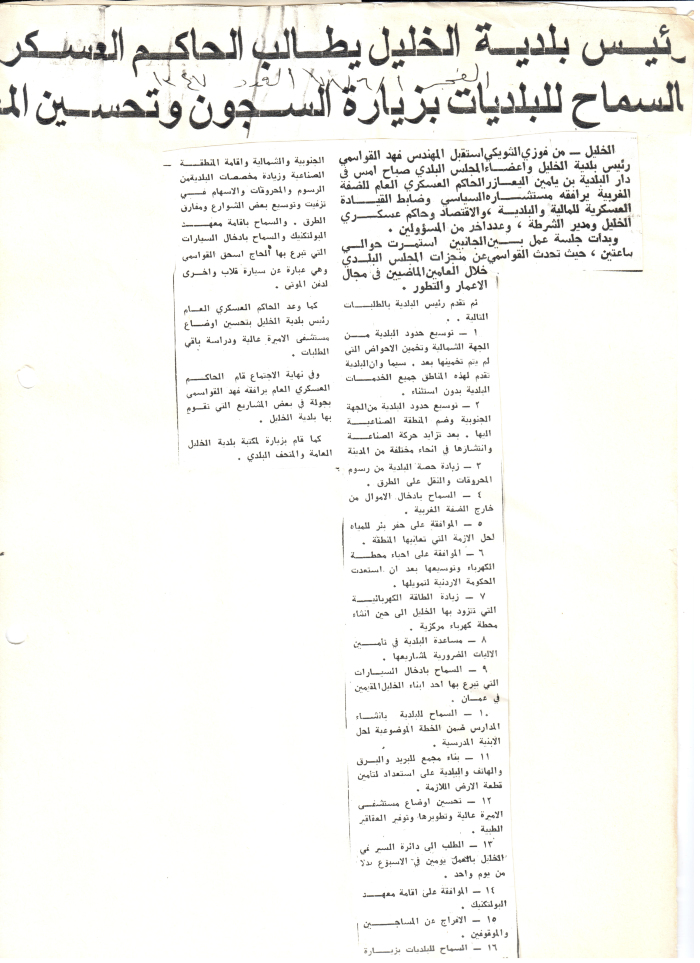 رئيس بلدية الخليل يطالب الحاكم العسكر
بالسماح للبلديات بزيارة السجون وتحسين الم
الفجر
الخليل — من فوزي الشويكي استقبل المهندس فهد القواسمي
رئيس بلدية الخليل واعضاء المجلس البلدي صباح امس في
دار البلدية بن يامين اليعازر الحاكم العسكري العام للضفة
الغربية يرافقه مستشاره السياسي وضابط القيادة
العسكرية للمالية والبلدية ، والاقتصاد وحاكم عسكري
الخليل ومدير الشرطة ، وعدد اخر من المسؤولين .
وبدات جلسة عمل بين الجانبين استمرت حوالي
ساعتين ، حيث تحدث القواسمي عن منجزات المجلس البلدي
خلال العامين الماضيين في مجال
الاعمار والتطور .
ثم تقدم رئيس البلدية بالطلبات
التالية . .
١ — توسيع حدود البلدية من
الجهة الشمالية وتخمين الاحواض التي
لم يتم تخمينها بعد . سيما وان البلدية
تقدم لهذه المناطق جميع الخدمات
البلدية بدون استثناء .
٢ — توسيع حدود البلدية من الجهة
الجنوبية وضم المنطقة الصناعية
اليها . بعد تزايد حركة الصناعة
وانتشارها في انحاء مختلفة من المدينة
٣ — زيادة حصة البلدية من رسوم
المحروقات والنقل على الطرق .
٤ — السماح بادخال الاموال من
خارج الضفة الغربية .
٥ — الموافقة على حفر بئر للمياه
لحل الازمة التي تعانيها المنطقة .
٦ — الموافقة على احياء محطة
الكهرباء وتوسيعها بعد ان استعدت
الحكومة الاردنية لتمويلها .
٧ — زيادة الطاقة الكهربائية
التي تتزود بها الخليل الى حين انشاء
محطة كهرباء مركزية .
٨ — مساعدة البلدية في تأمين
الاليات الضرورية لمشاريعها .
٩ — السماح بادخال السيارات
التي تبرع بها احد ابناء الخليل المقيمين
في عمان .
١٠ — السماح للبلدية بانشاء
المدارس ضمن الخطة الموضوعية لحل
الابنية المدرسية .
١١ — بناء مجمع للبريد والبرق
والهاتف والبلدية على استعداد لتأمين
قطعة الارض اللازمة .
١٢ — تحسين اوضاع مستشفى
الاميرة عالية وتطويرها وتوفير العقاقير
الطبية .
١٣ — الطلب الى دائرة السير في
الخليل بالعمل يومين في الاسبوع بدلا
من يوم واحد .
١٤ — الموافقة على اقامة معهد
البولتكنيك .
١٥ — الافراج عن المساجين
والموقوفين .
١٦ — السماح للبلديات بزيارة
الجنوبية والشمالية واقامة المنطقة
الصناعية وزيادة مخصصات البلدية من
الرسوم والمحروقات والاسهام في
تزفيت وتوسيع بعض الشوارع ومفارق
الطرق . والسماح باقامة معهد
البولتكنيك والسماح بادخال السيارات
التي تبرع بها الحاج اسحق القواسمي
وهي عبارة عن سيارة قلاب واخرى
لدفن الموتى .
كما وعد الحاكم العسكري العام
رئيس بلدية الخليل بتحسين اوضاع
مستشفى الاميرة عالية ودراسة باقي
الطلبات .
وفي نهاية الاجتماع قام الحاكم
العسكري العام يرافقه فهد القواسمي
بجولة في بعض المشاريع التي تقوم
بها بلدية الخليل .
كما قام بزيارة لمكتبة بلدية الخليل
العامة والمتحف البلدي .